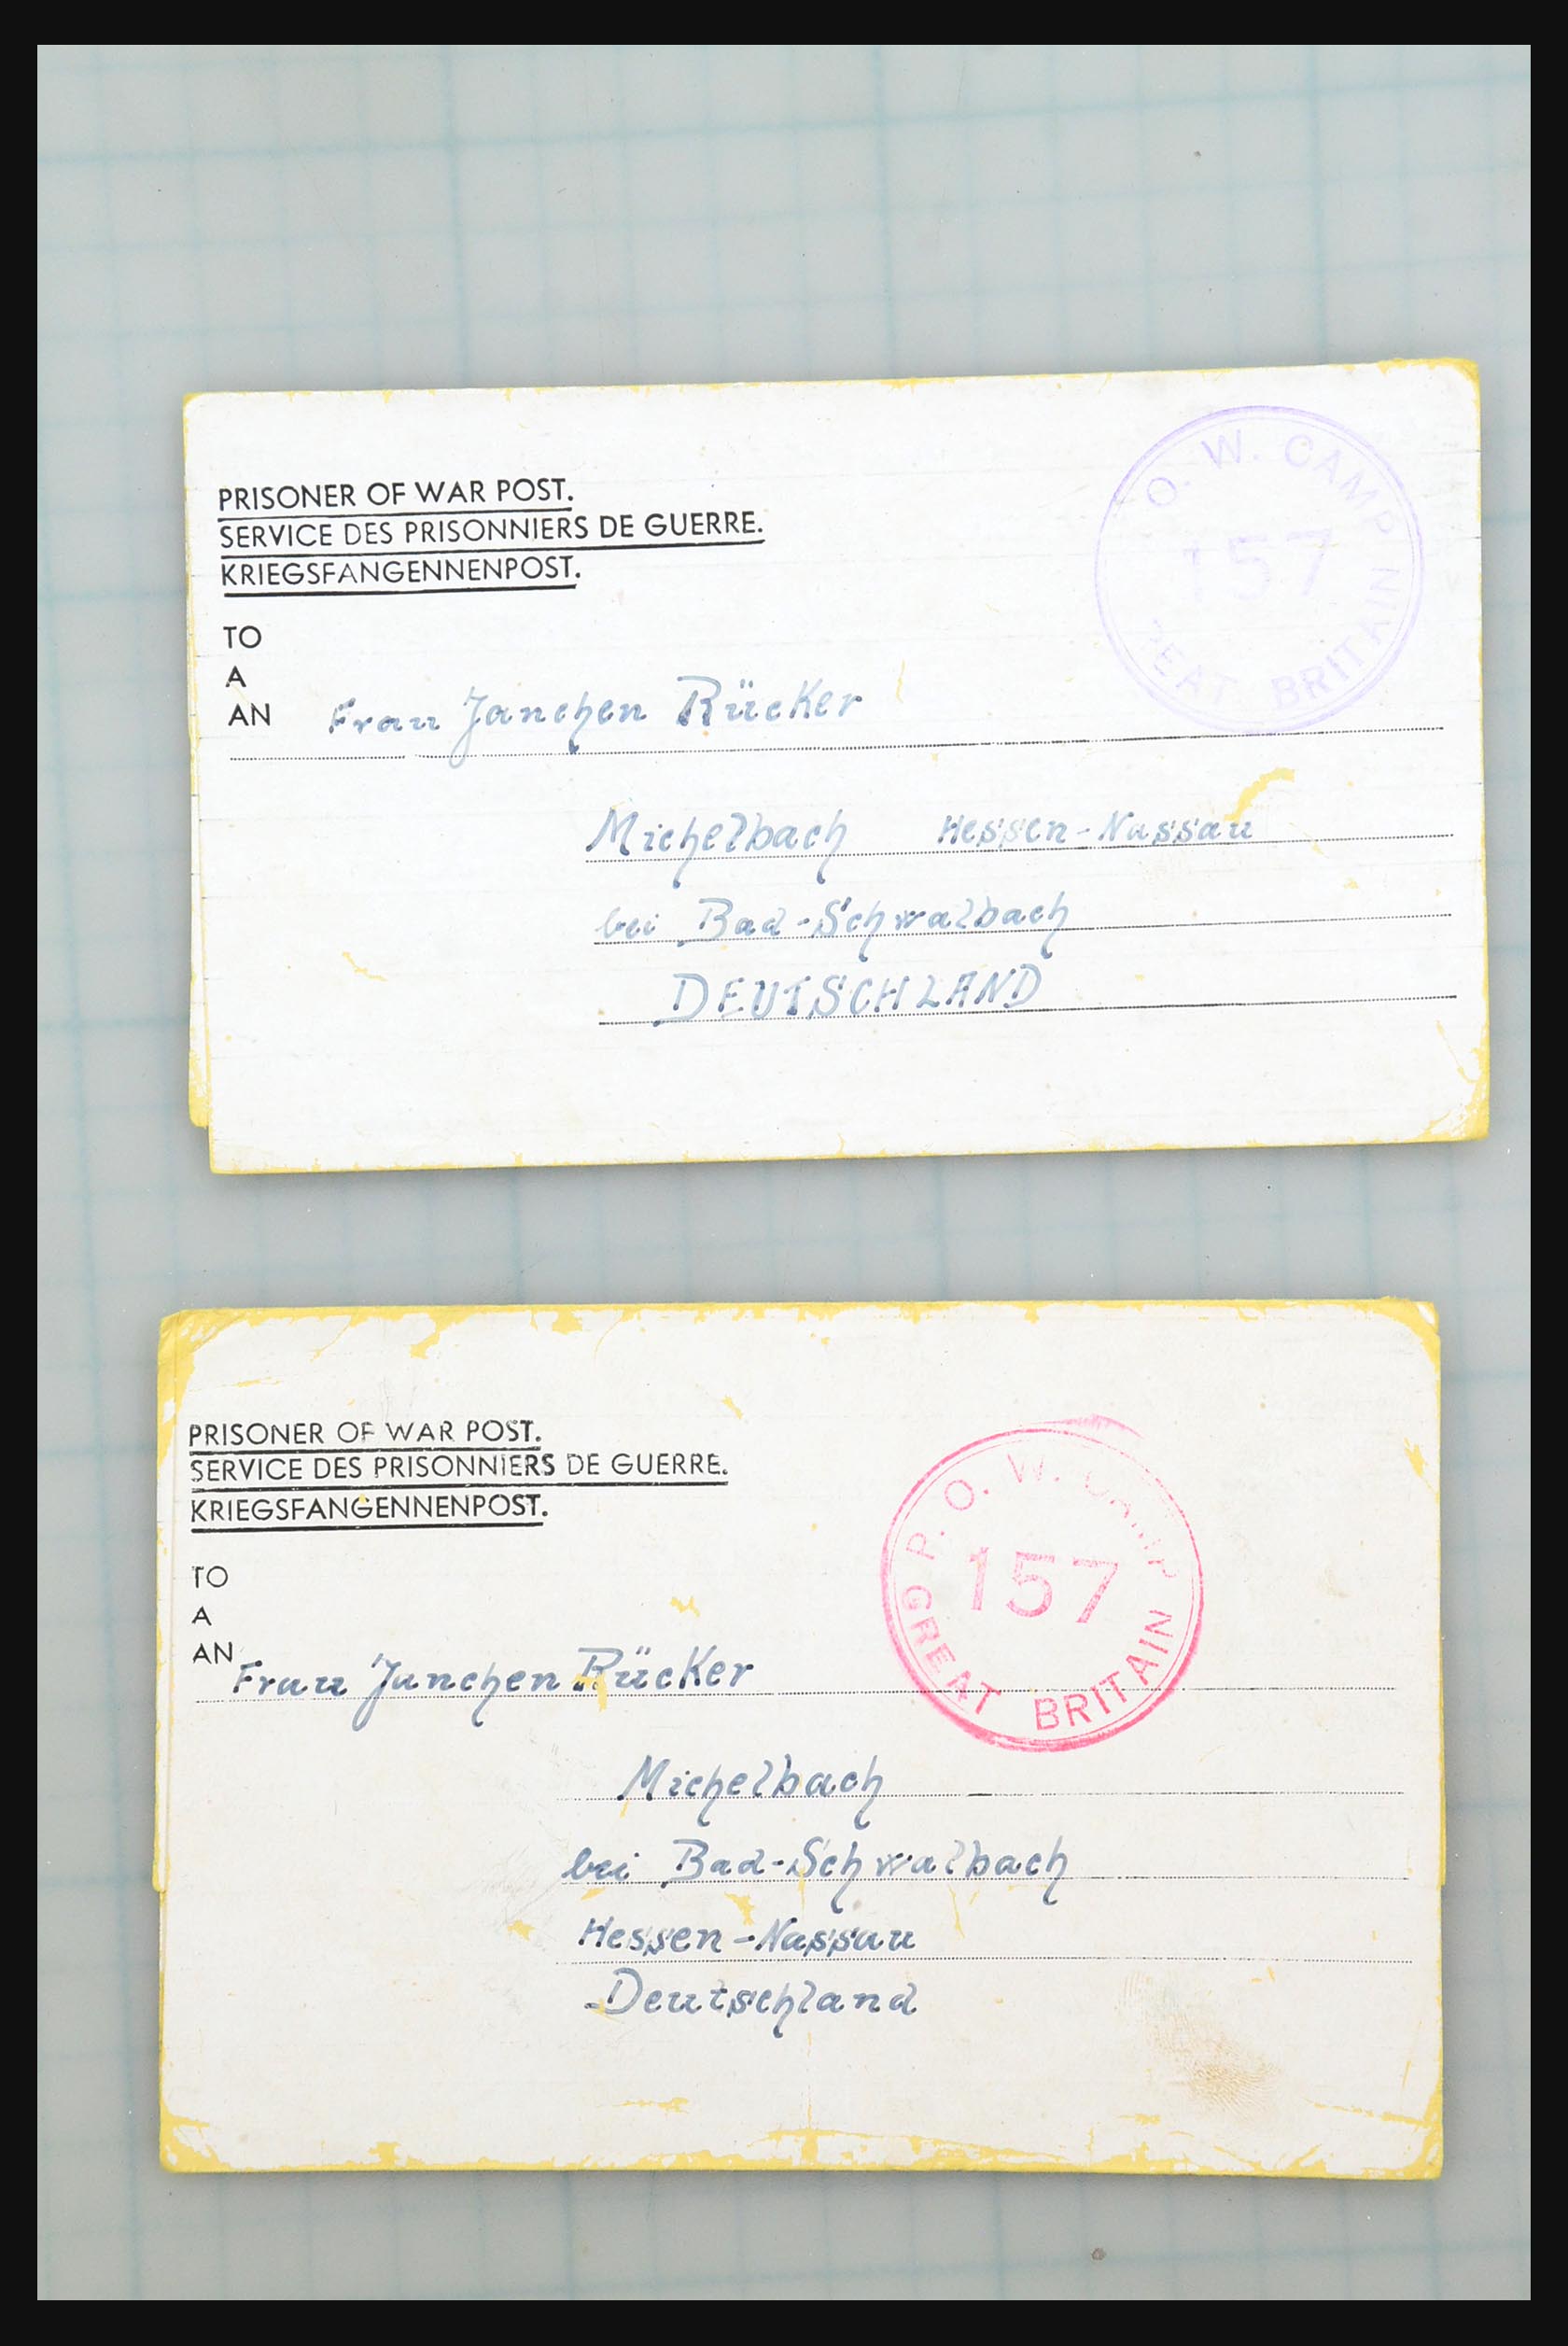 PRISONER OF WAR POST.
SERVICE DES PRISONNIERS DE GUERRE.
KRIEGSFANGENNENPOST.
O. W. CAMP
157
REAT BRITAIN
TO
A
AN Frau Janchen Rücker
Michelbach Hessen-Nassau
bei Bad-Schwalbach
DEUTSCHLAND
PRISONER OF WAR POST.
SERVICE DES PRISONNIERS DE GUERRE.
KRIEGSFANGENNENPOST.
P. O. W. CAMP
157
GREAT BRITAIN
TO
A
AN Frau Janchen Rücker
Michelbach
bei Bad-Schwalbach
Hessen-Nassau
Deutschland